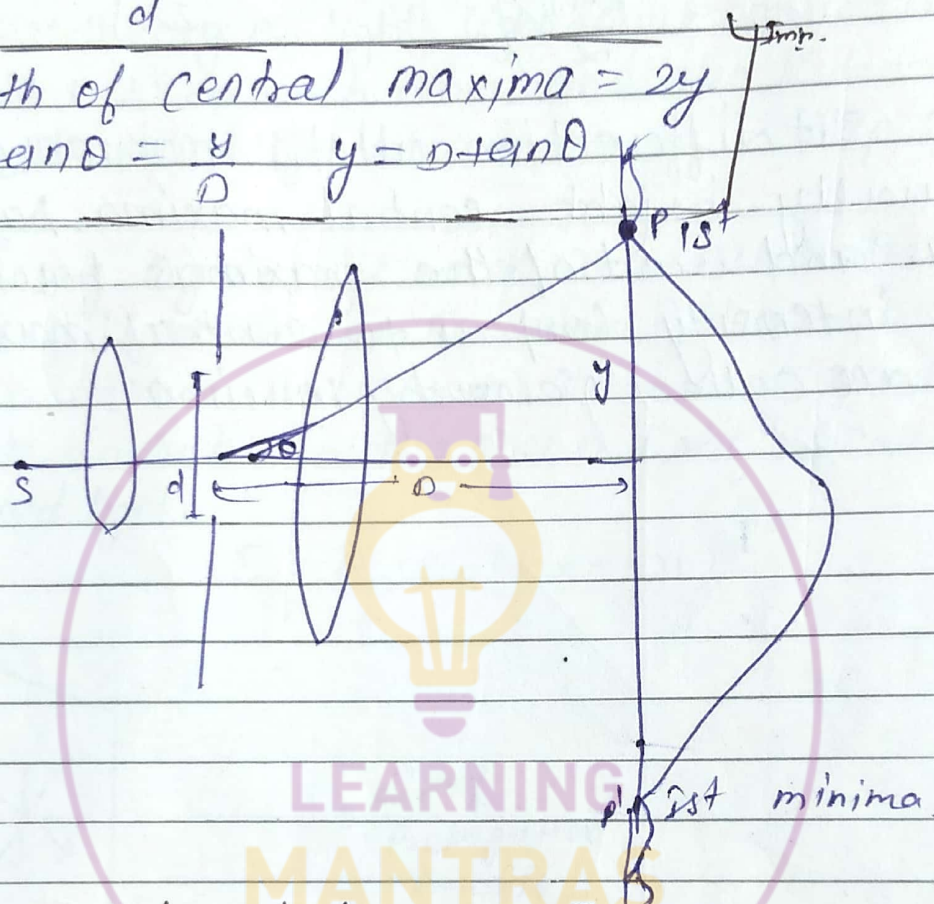 d
th of central maxima = 2y
tanθ = y/D y = D tanθ
P Ist
y
θ
S d D
P' Ist minima
LEARNING
MANTRAS